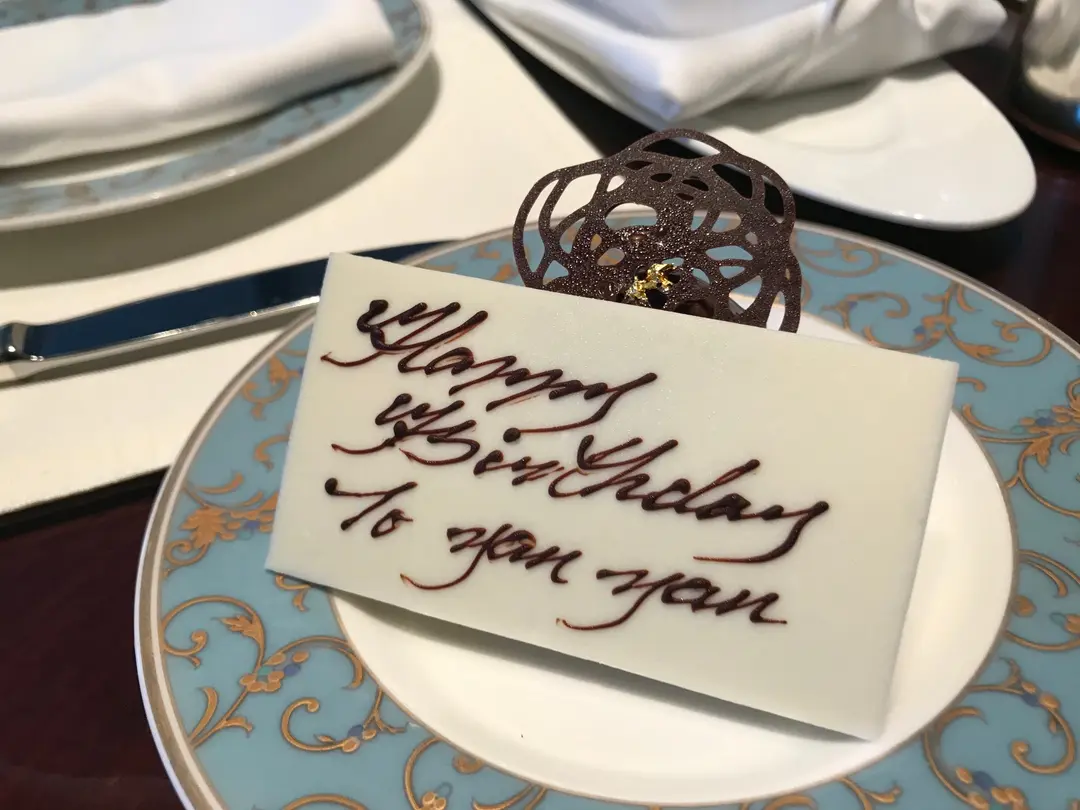 Happy
Birthday
To Yan Yan